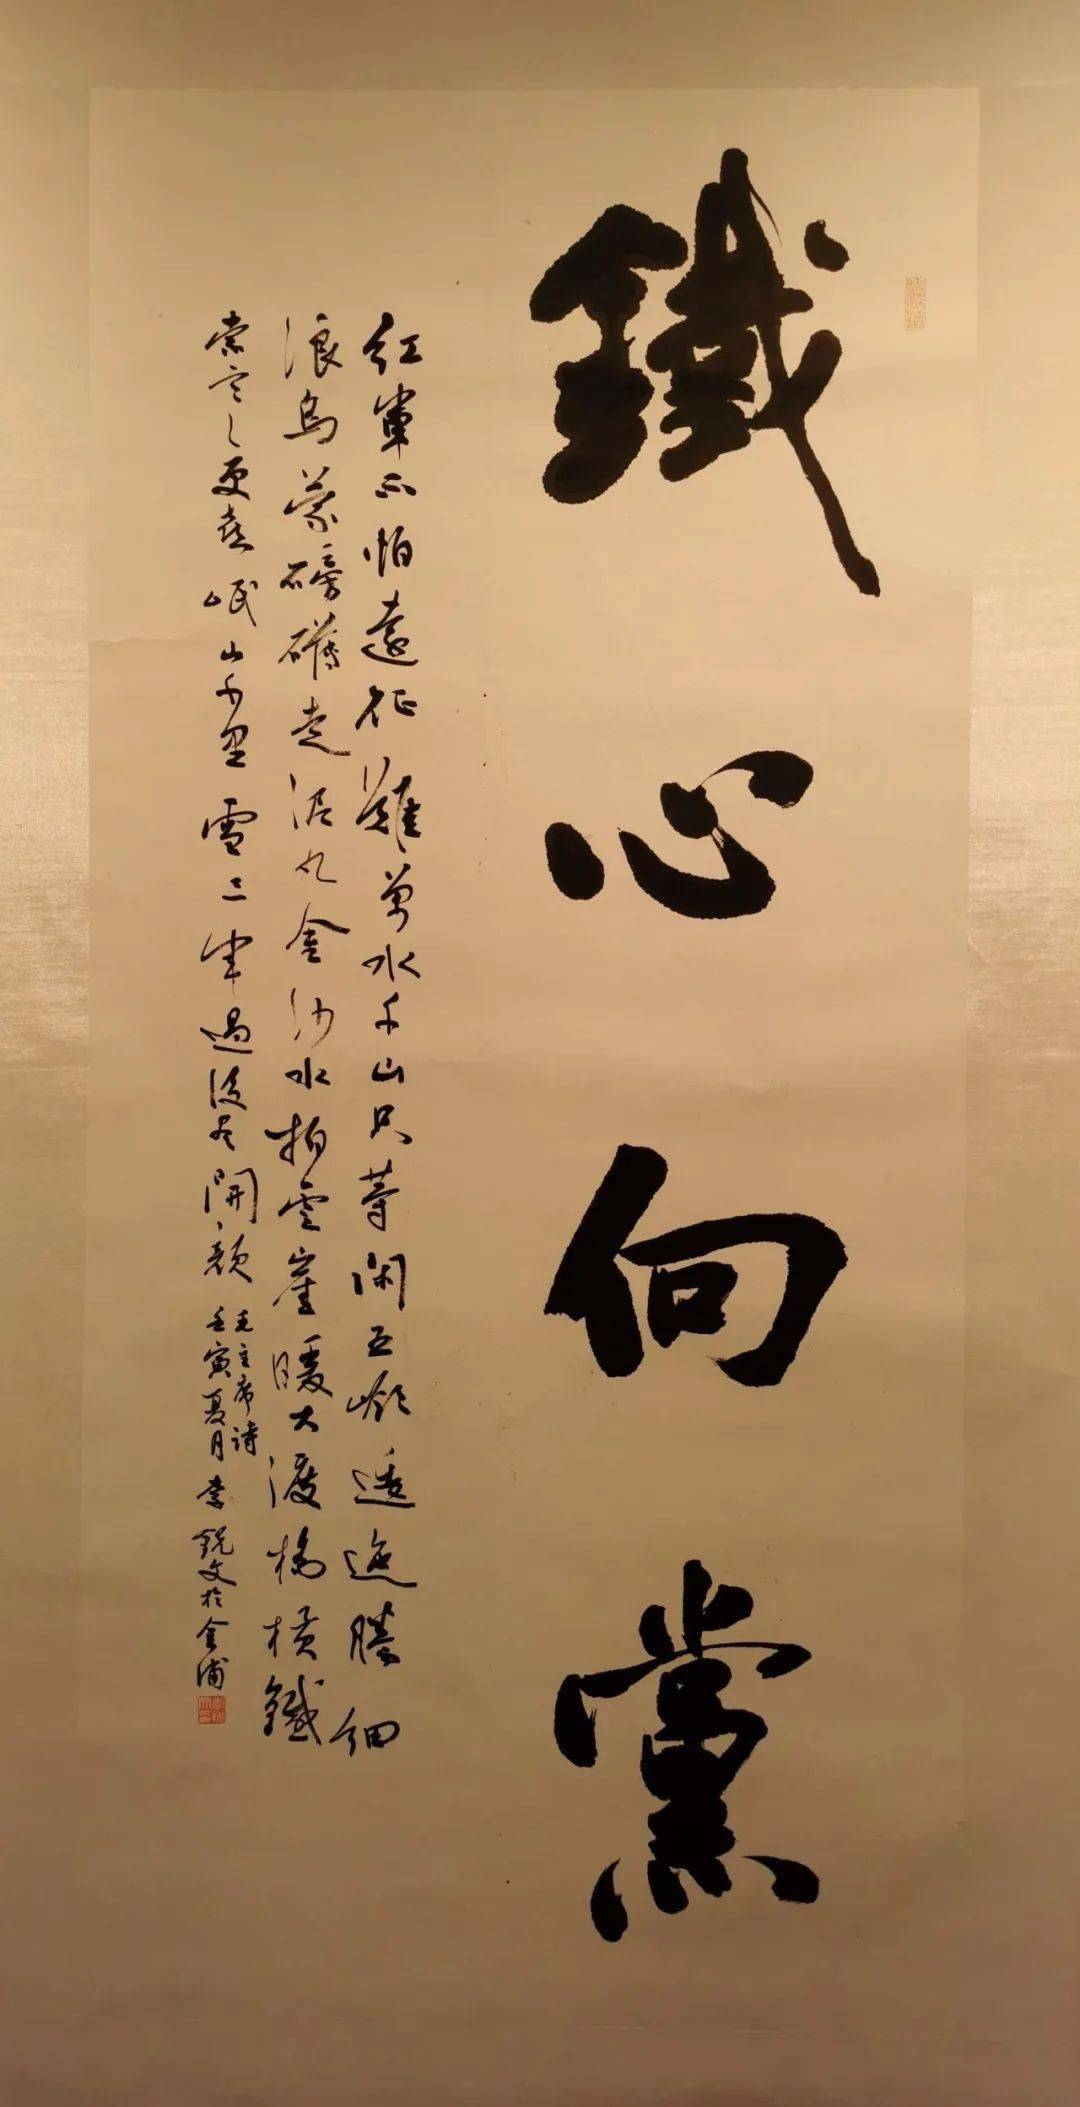 鐵心向黨
紅軍不怕遠征難萬水千山只等閑五嶺逶迤騰細
浪烏蒙磅礴走泥丸金沙水拍雲崖暖大渡橋橫鐵
索寒更喜岷山千里雪三軍過後盡開顏
毛主席诗
壬寅夏月李銳文於金浦